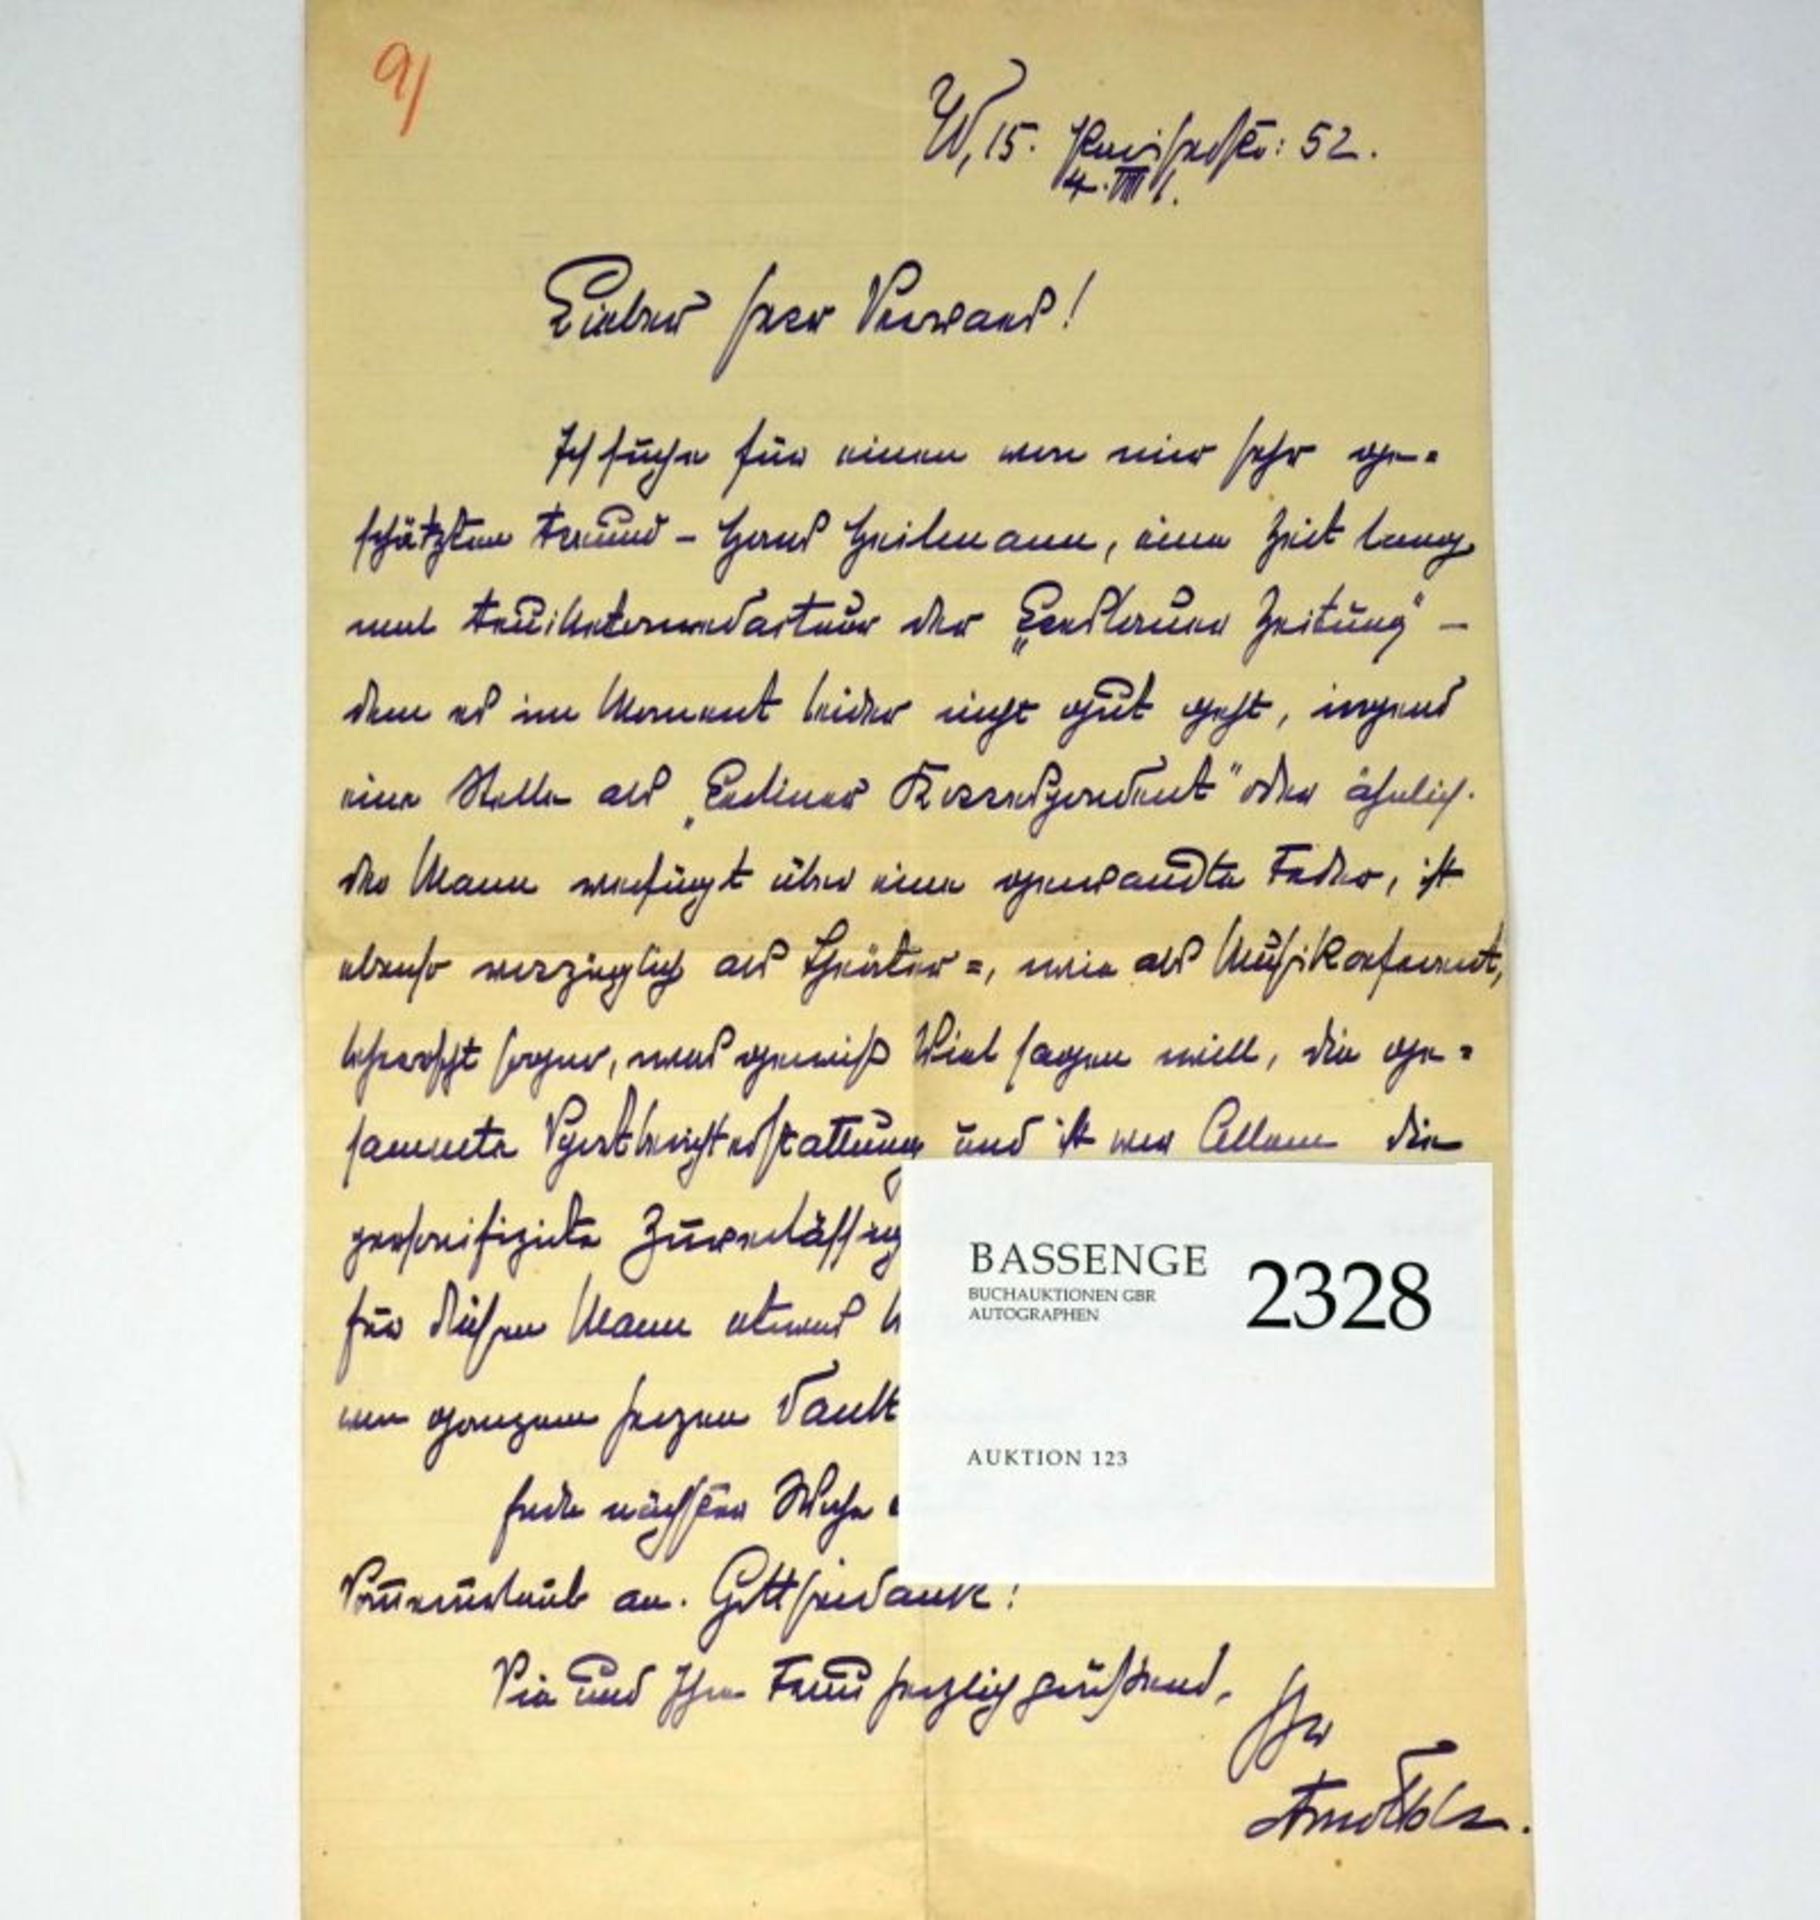 9/
W, 15. Pariserstr: 52.
4. VIII
Lieber Herr
Ich suche für einen von mir sehr ge=
schätzten Freund – Hans Heilmann, eine Zeit lang
mal der „Breslauer Zeitung" –
dem es im Moment leider nicht gut geht, irgend
eine Stelle als „Berliner Korrespondent" oder ähnlich.
der Mann verfügt über eine gewandte Feder, ist
ebenso vorzüglich als Theater=, wie als Musikreferent,
beherrscht sogar, was gewiß Viel sagen will, die ge=
samte Sportberichterstattung und ist vor Allem die
personifizirte Zuverlässig
für diesen Mann etwas
von ganzem Herzen Dank
Ende nächster Woche
Sommerurlaub an. Gottseidank!
Sie und Ihre Frau herzlich grüßend,
Ihr
Arno Holz.
BASSENGE
BUCHAUKTIONEN GBR
AUTOGRAPHEN
2328
AUKTION 123